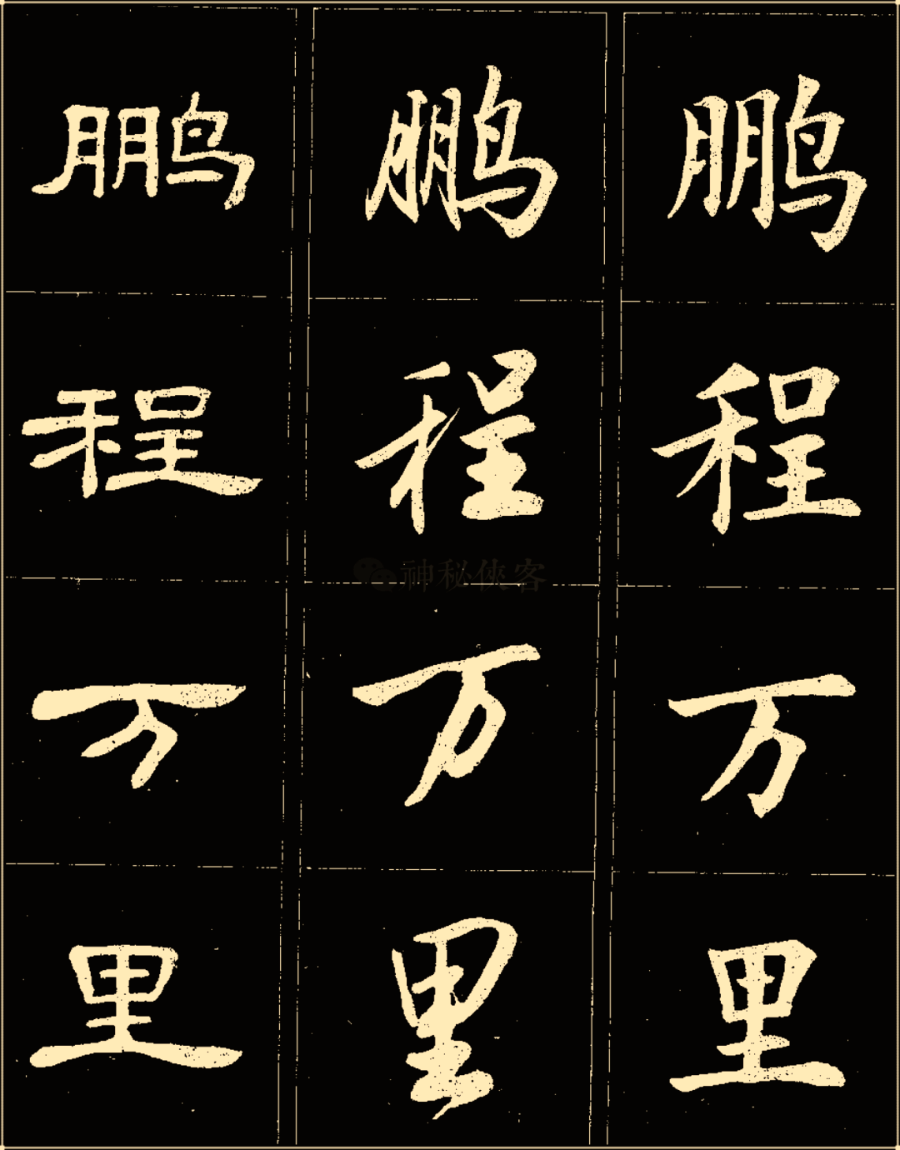 鹏程万里
鹏程万里
鹏程万里
神秘侠客